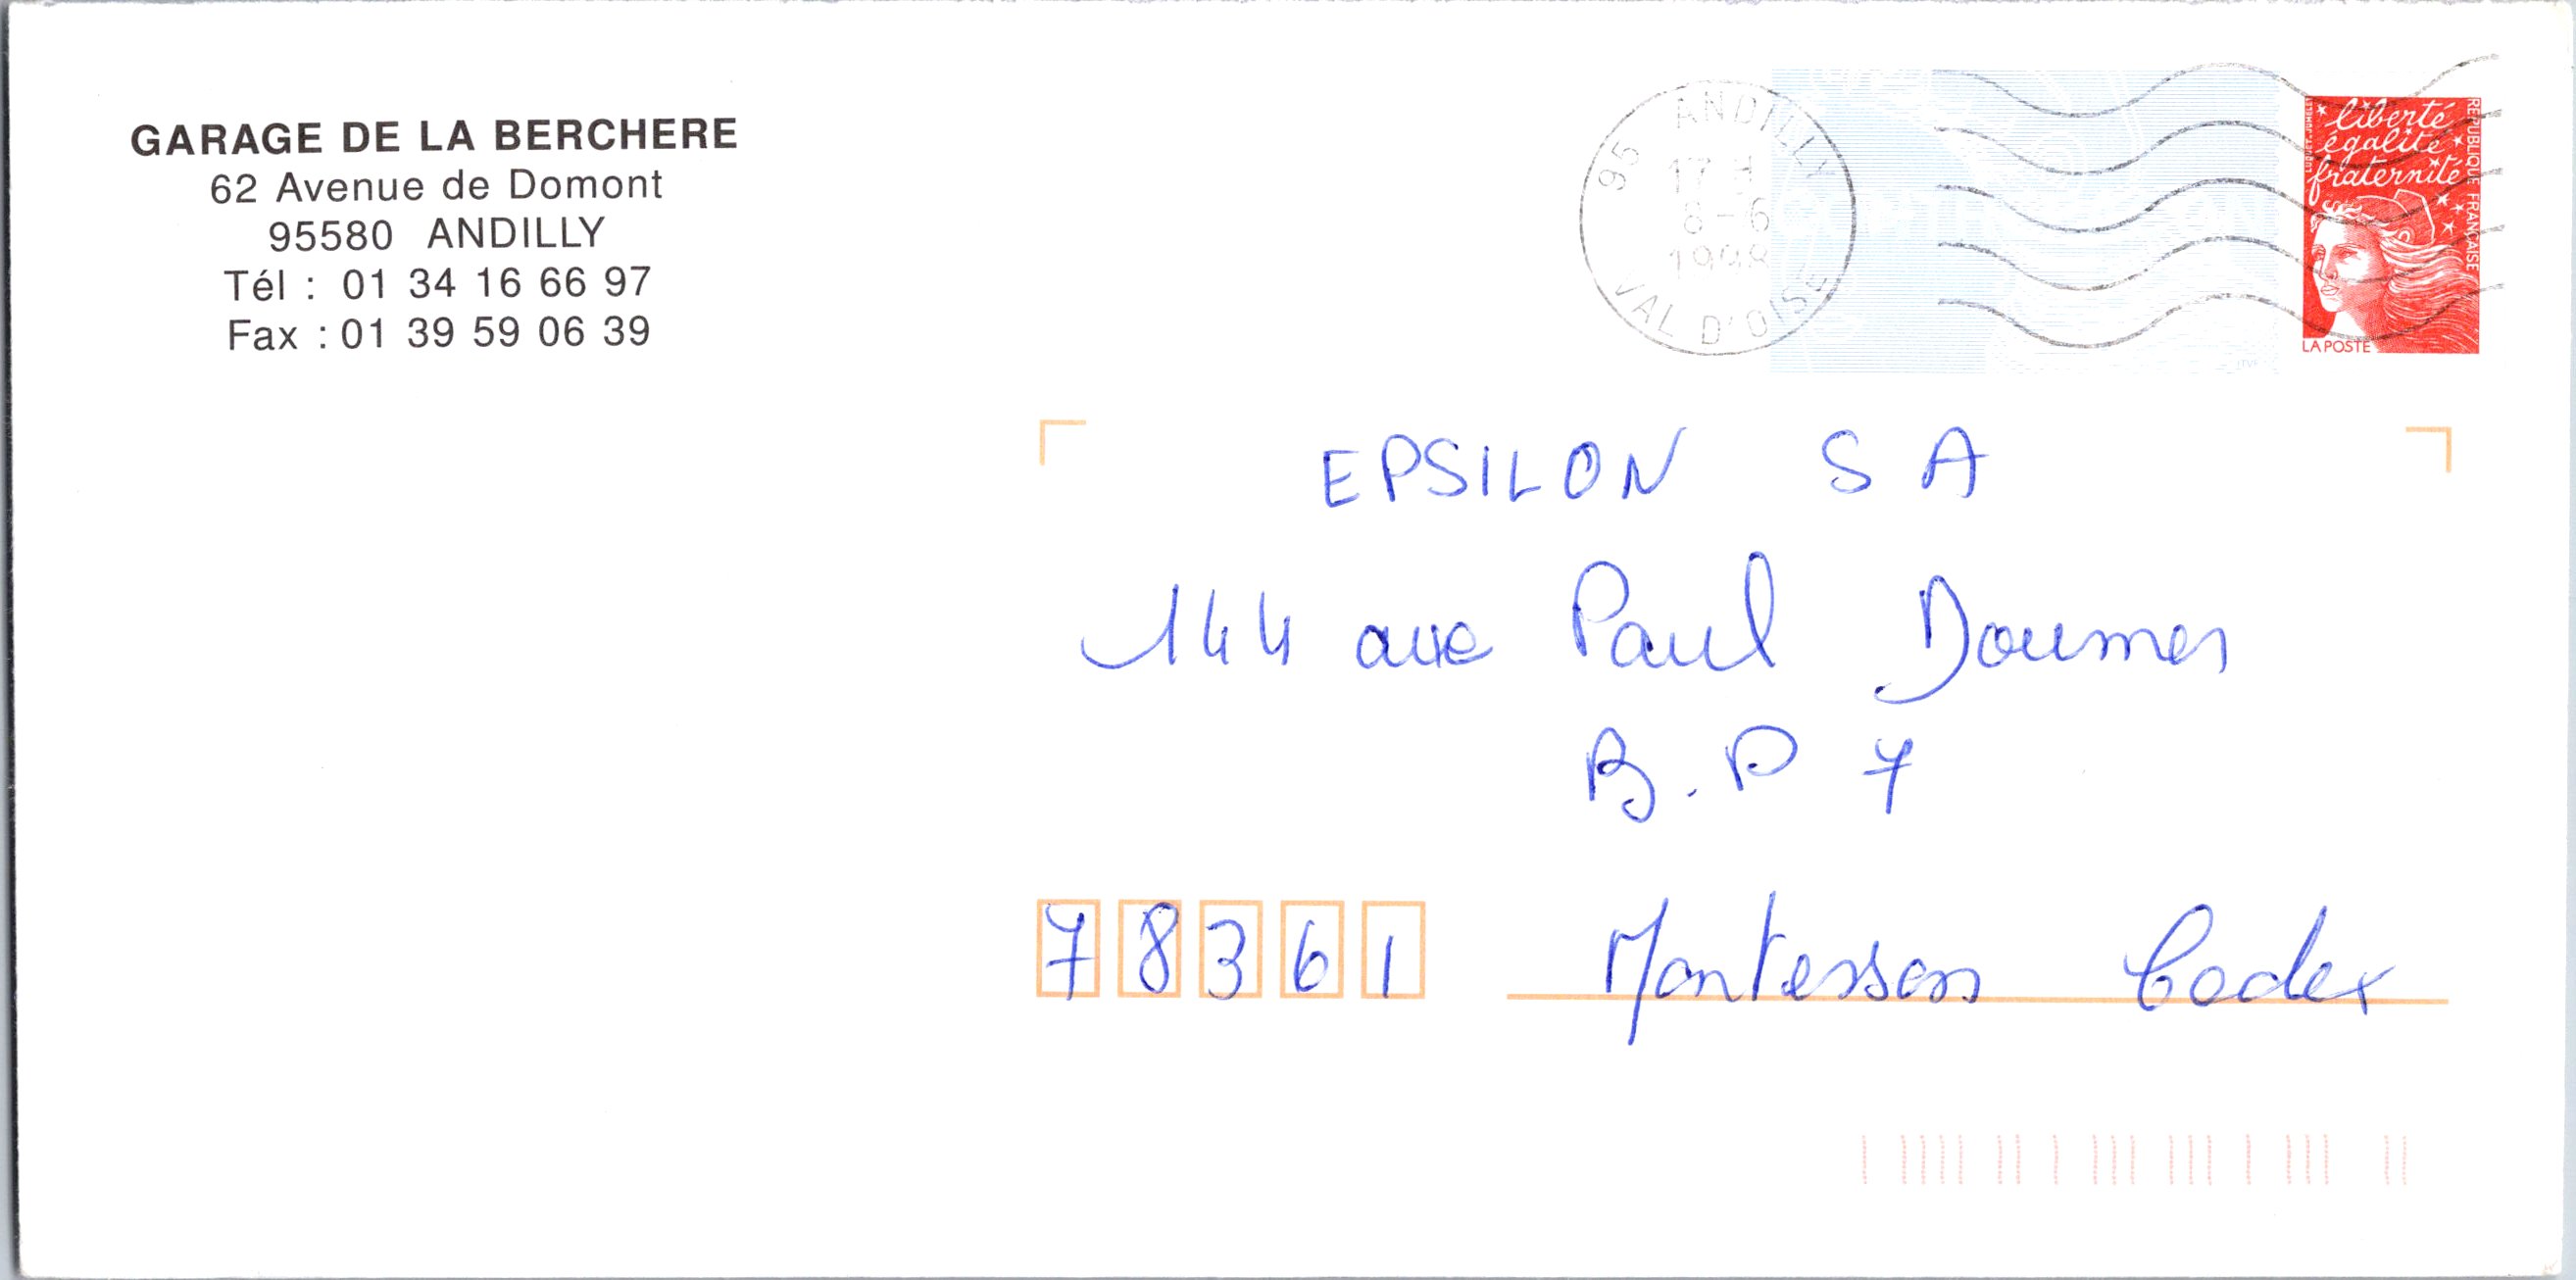 GARAGE DE LA BERCHERE
62 Avenue de Domont
95580 ANDILLY
Tél : 01 34 16 66 97
Fax : 01 39 59 06 39
95 ANDILLY
17 H
8-6
1998
VAL D'OISE
liberté
égalité
fraternité
RÉPUBLIQUE FRANÇAISE
LA POSTE
EPSILON S A
144 ave Paul Doumer
B.P 7
78361 Montesson Cedex